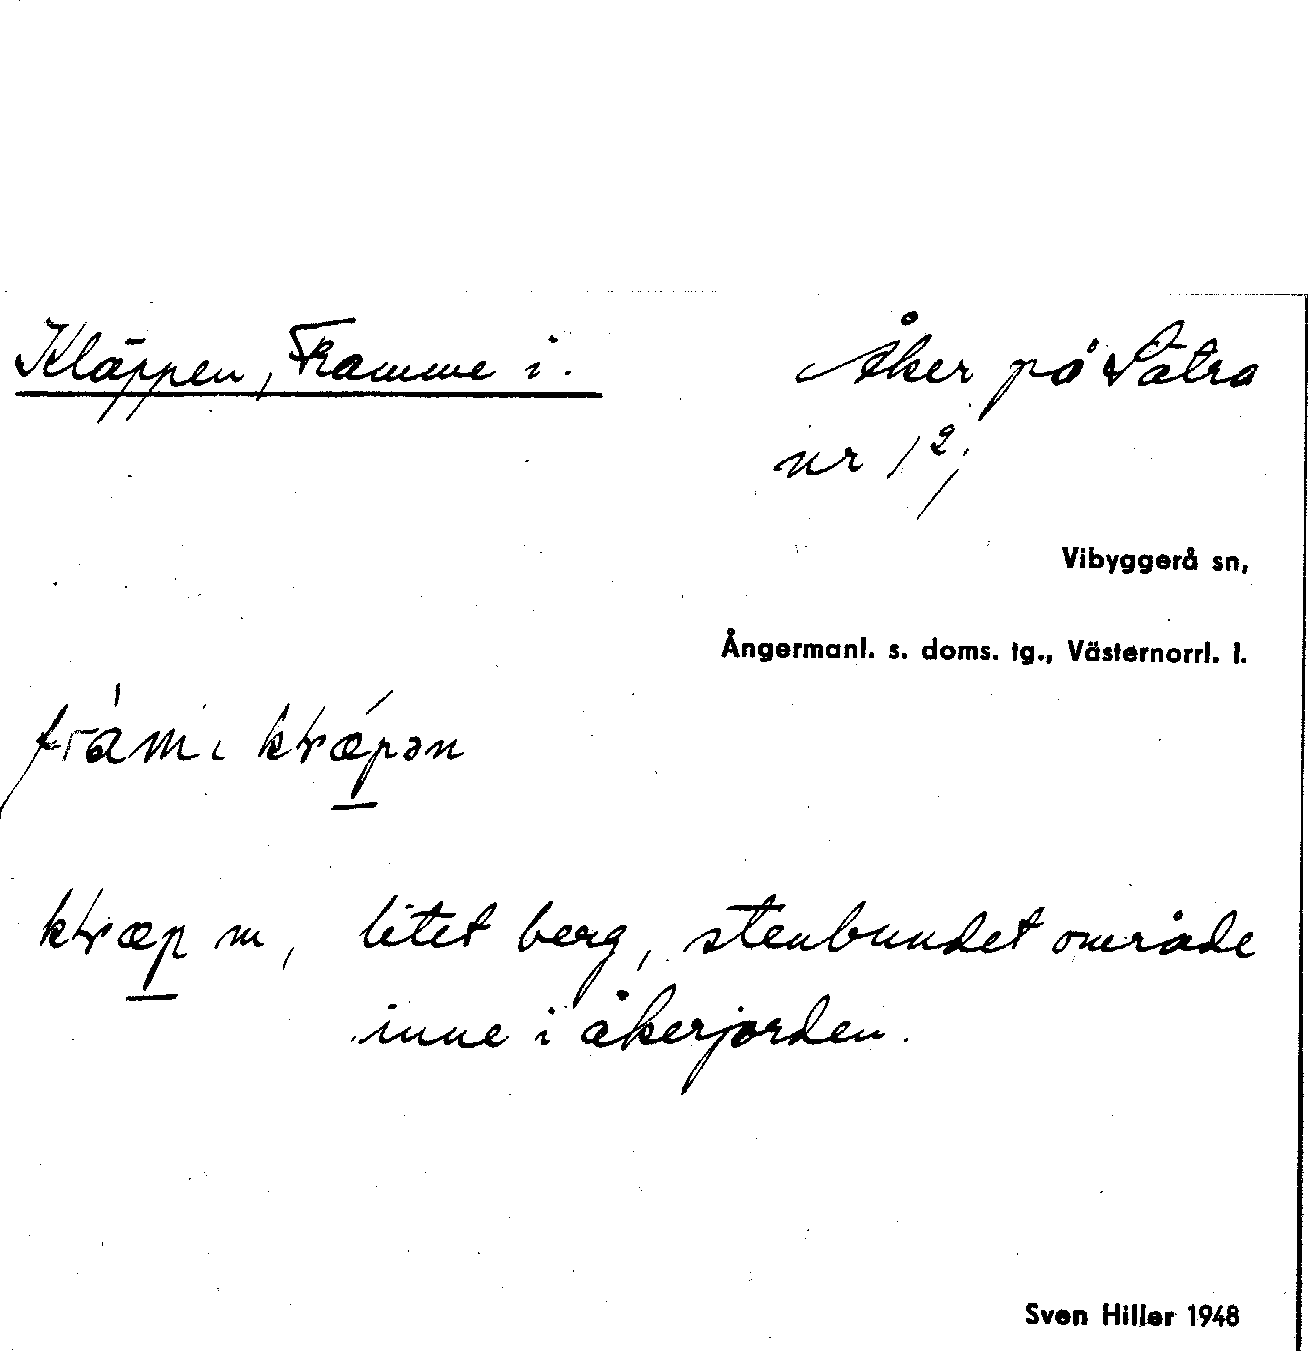 Kläppen, Framme i. Åker på Sätra
nr 1²,
Vibyggerå sn,
Ångermanl. s. doms. tg., Västernorrl. l.
fram i
m, litet berg, stenbundet område
inne i åkerjorden.
Sven Hiller 1948